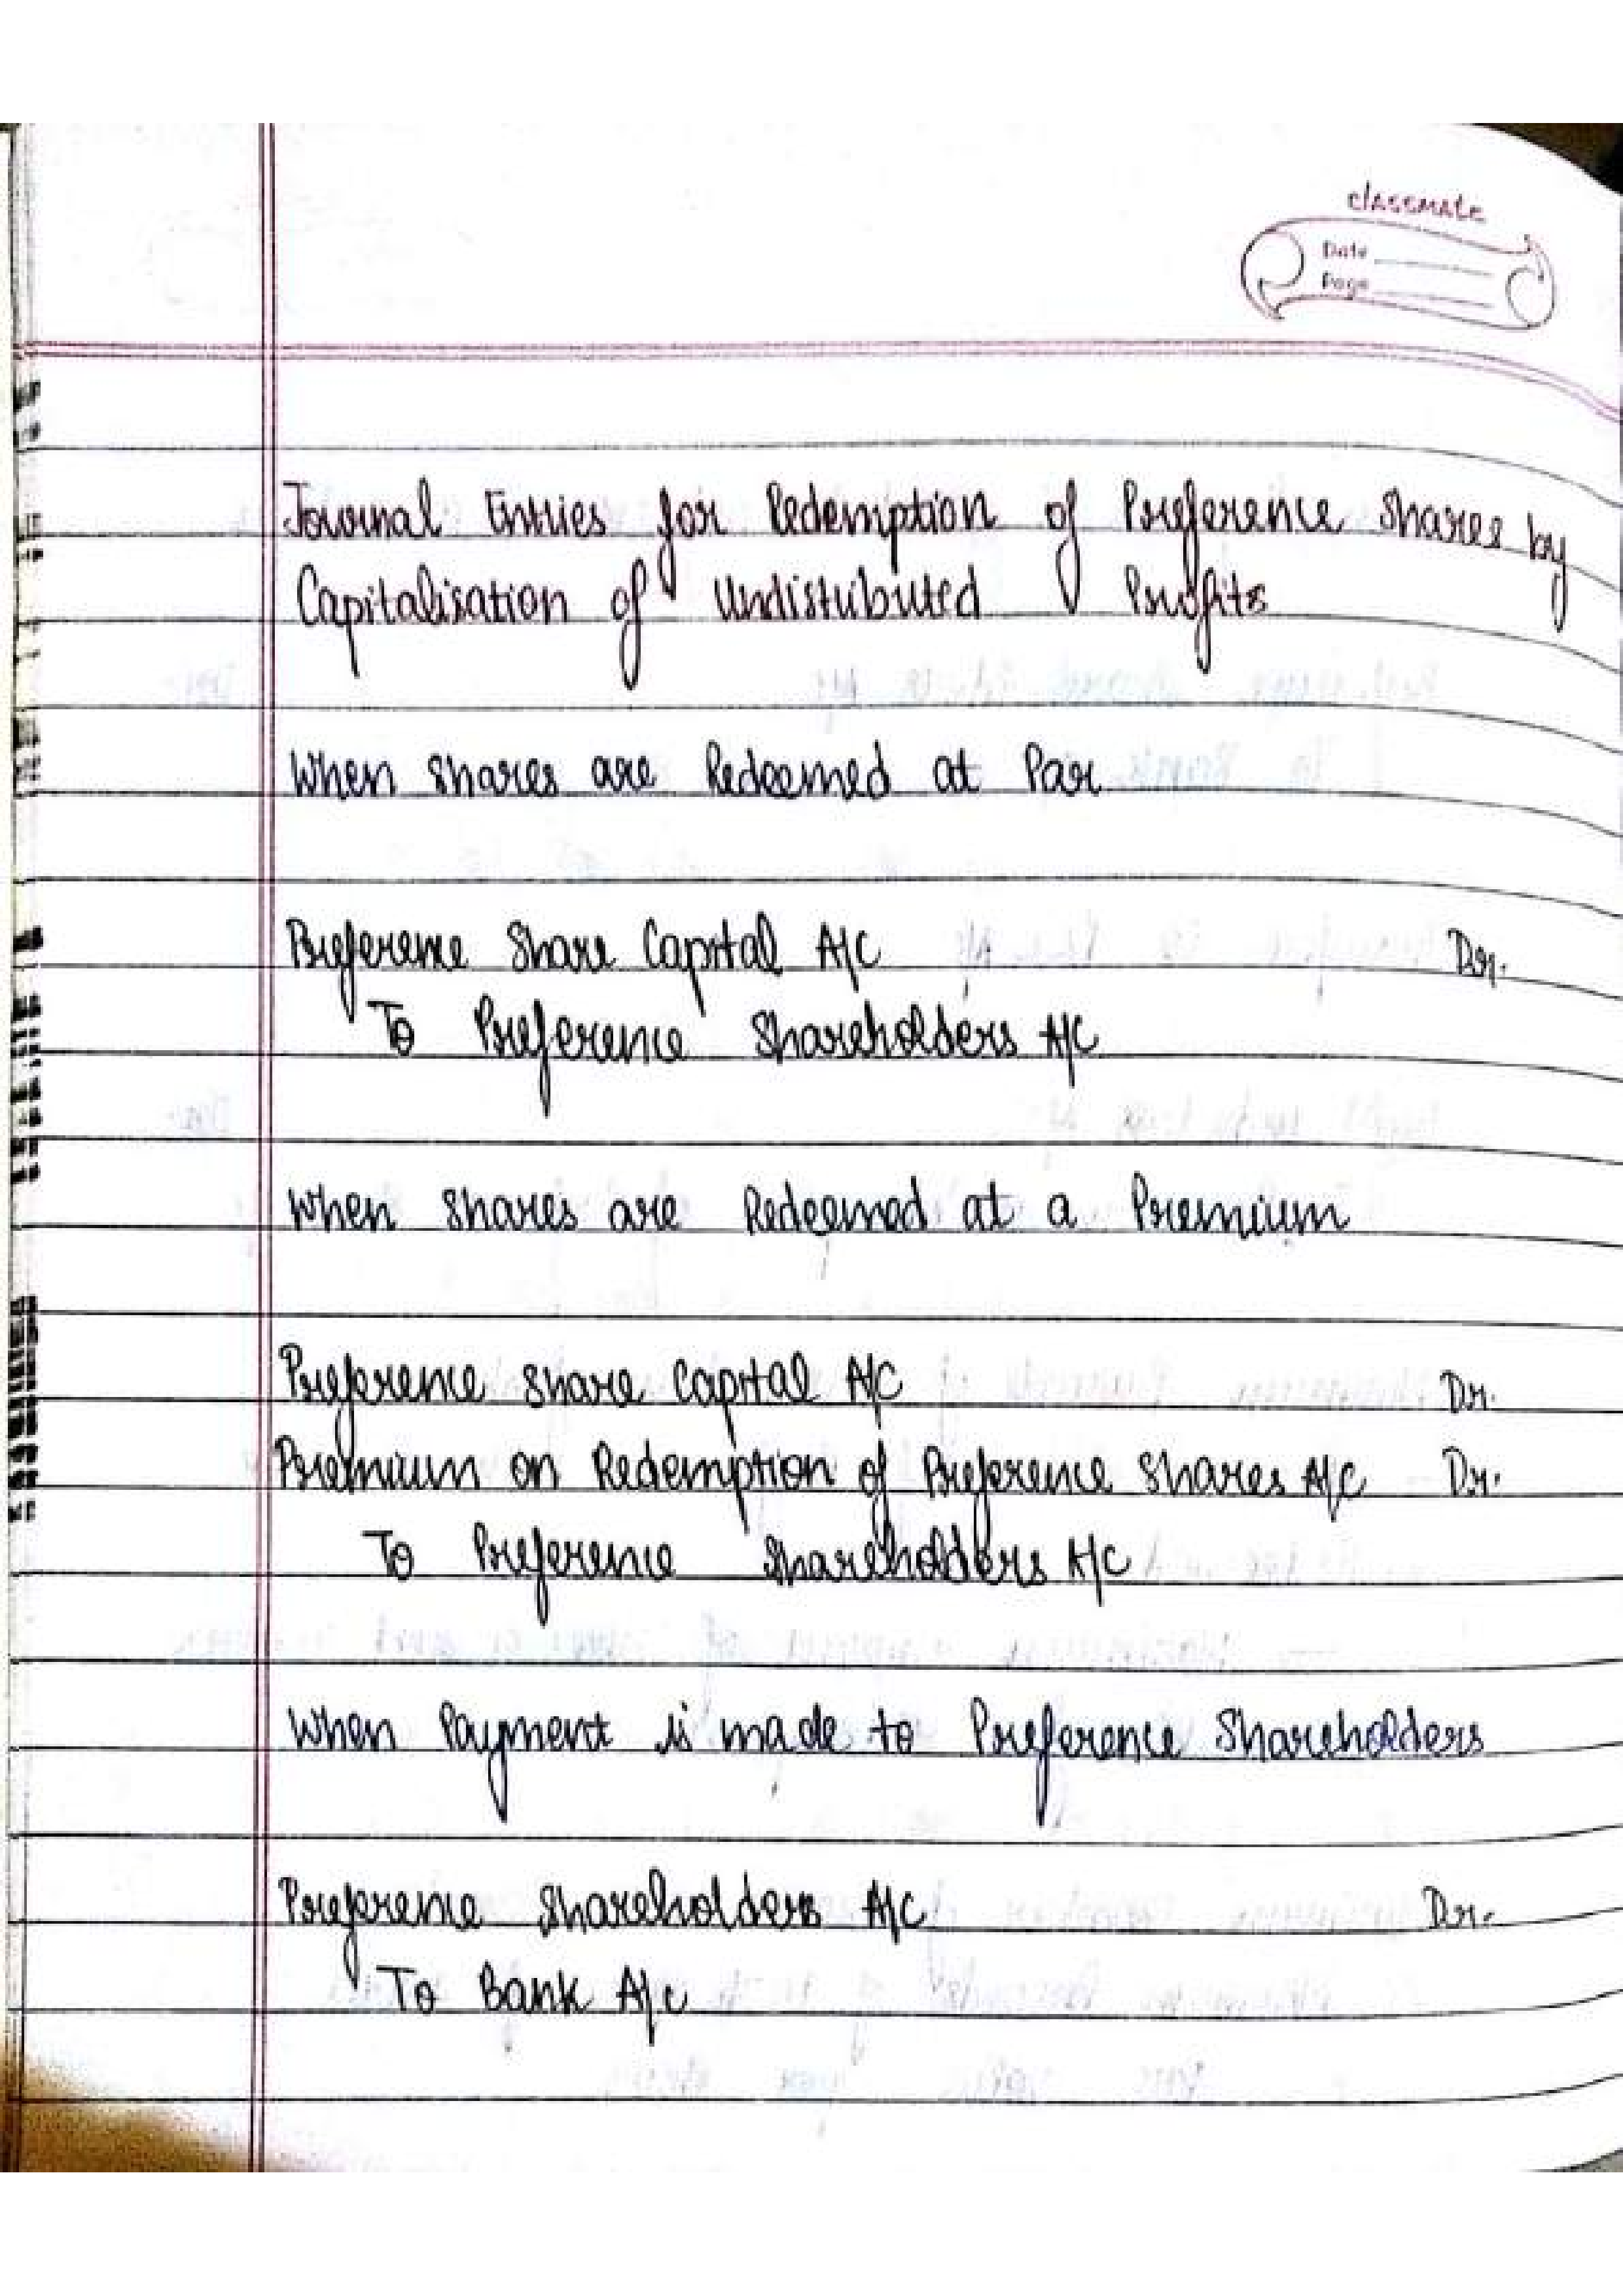 classmate
Date
Page
Journal Entries for Redemption of Preference Shares by
Capitalisation of Undistributed Profits
When Shares are Redeemed at Par
Preference Share Capital A/C Dr.
To Preference Shareholders A/C
When Shares are Redeemed at a Premium
Preference Share Capital A/C Dr.
Premium on Redemption of Preference Shares A/C Dr.
To Preference Shareholders A/C
When Payment is made to Preference Shareholders
Preference Shareholders A/C Dr.
To Bank A/c